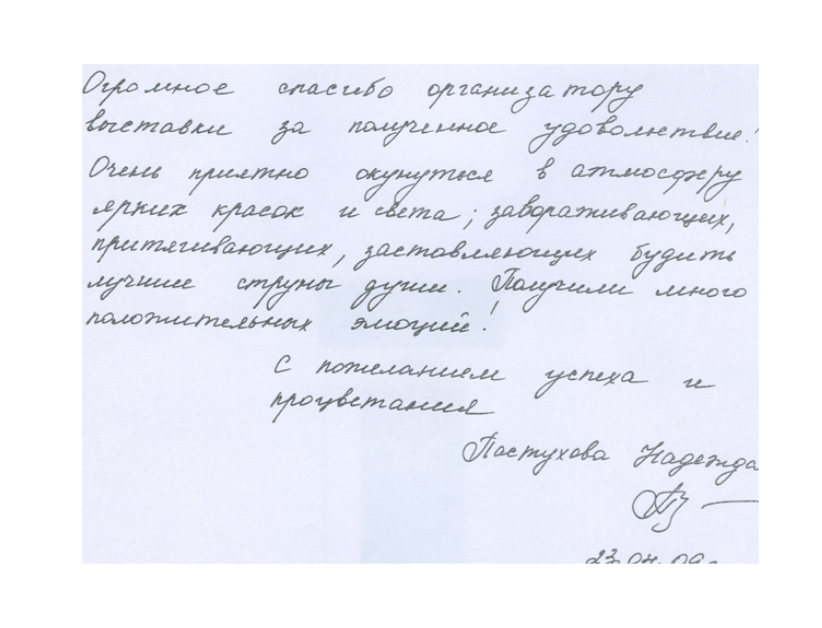 Огромное спасибо организатору
выставки за полученное удовольствие!
Очень приятно окунуться в атмосферу
ярких красок и света; завораживающих,
притягивающих, заставляющих будить
лучшие струны души. Получили много
положительных эмоций!
С пожеланием успеха и
процветания
Пастухова Надежда
23.04.09г